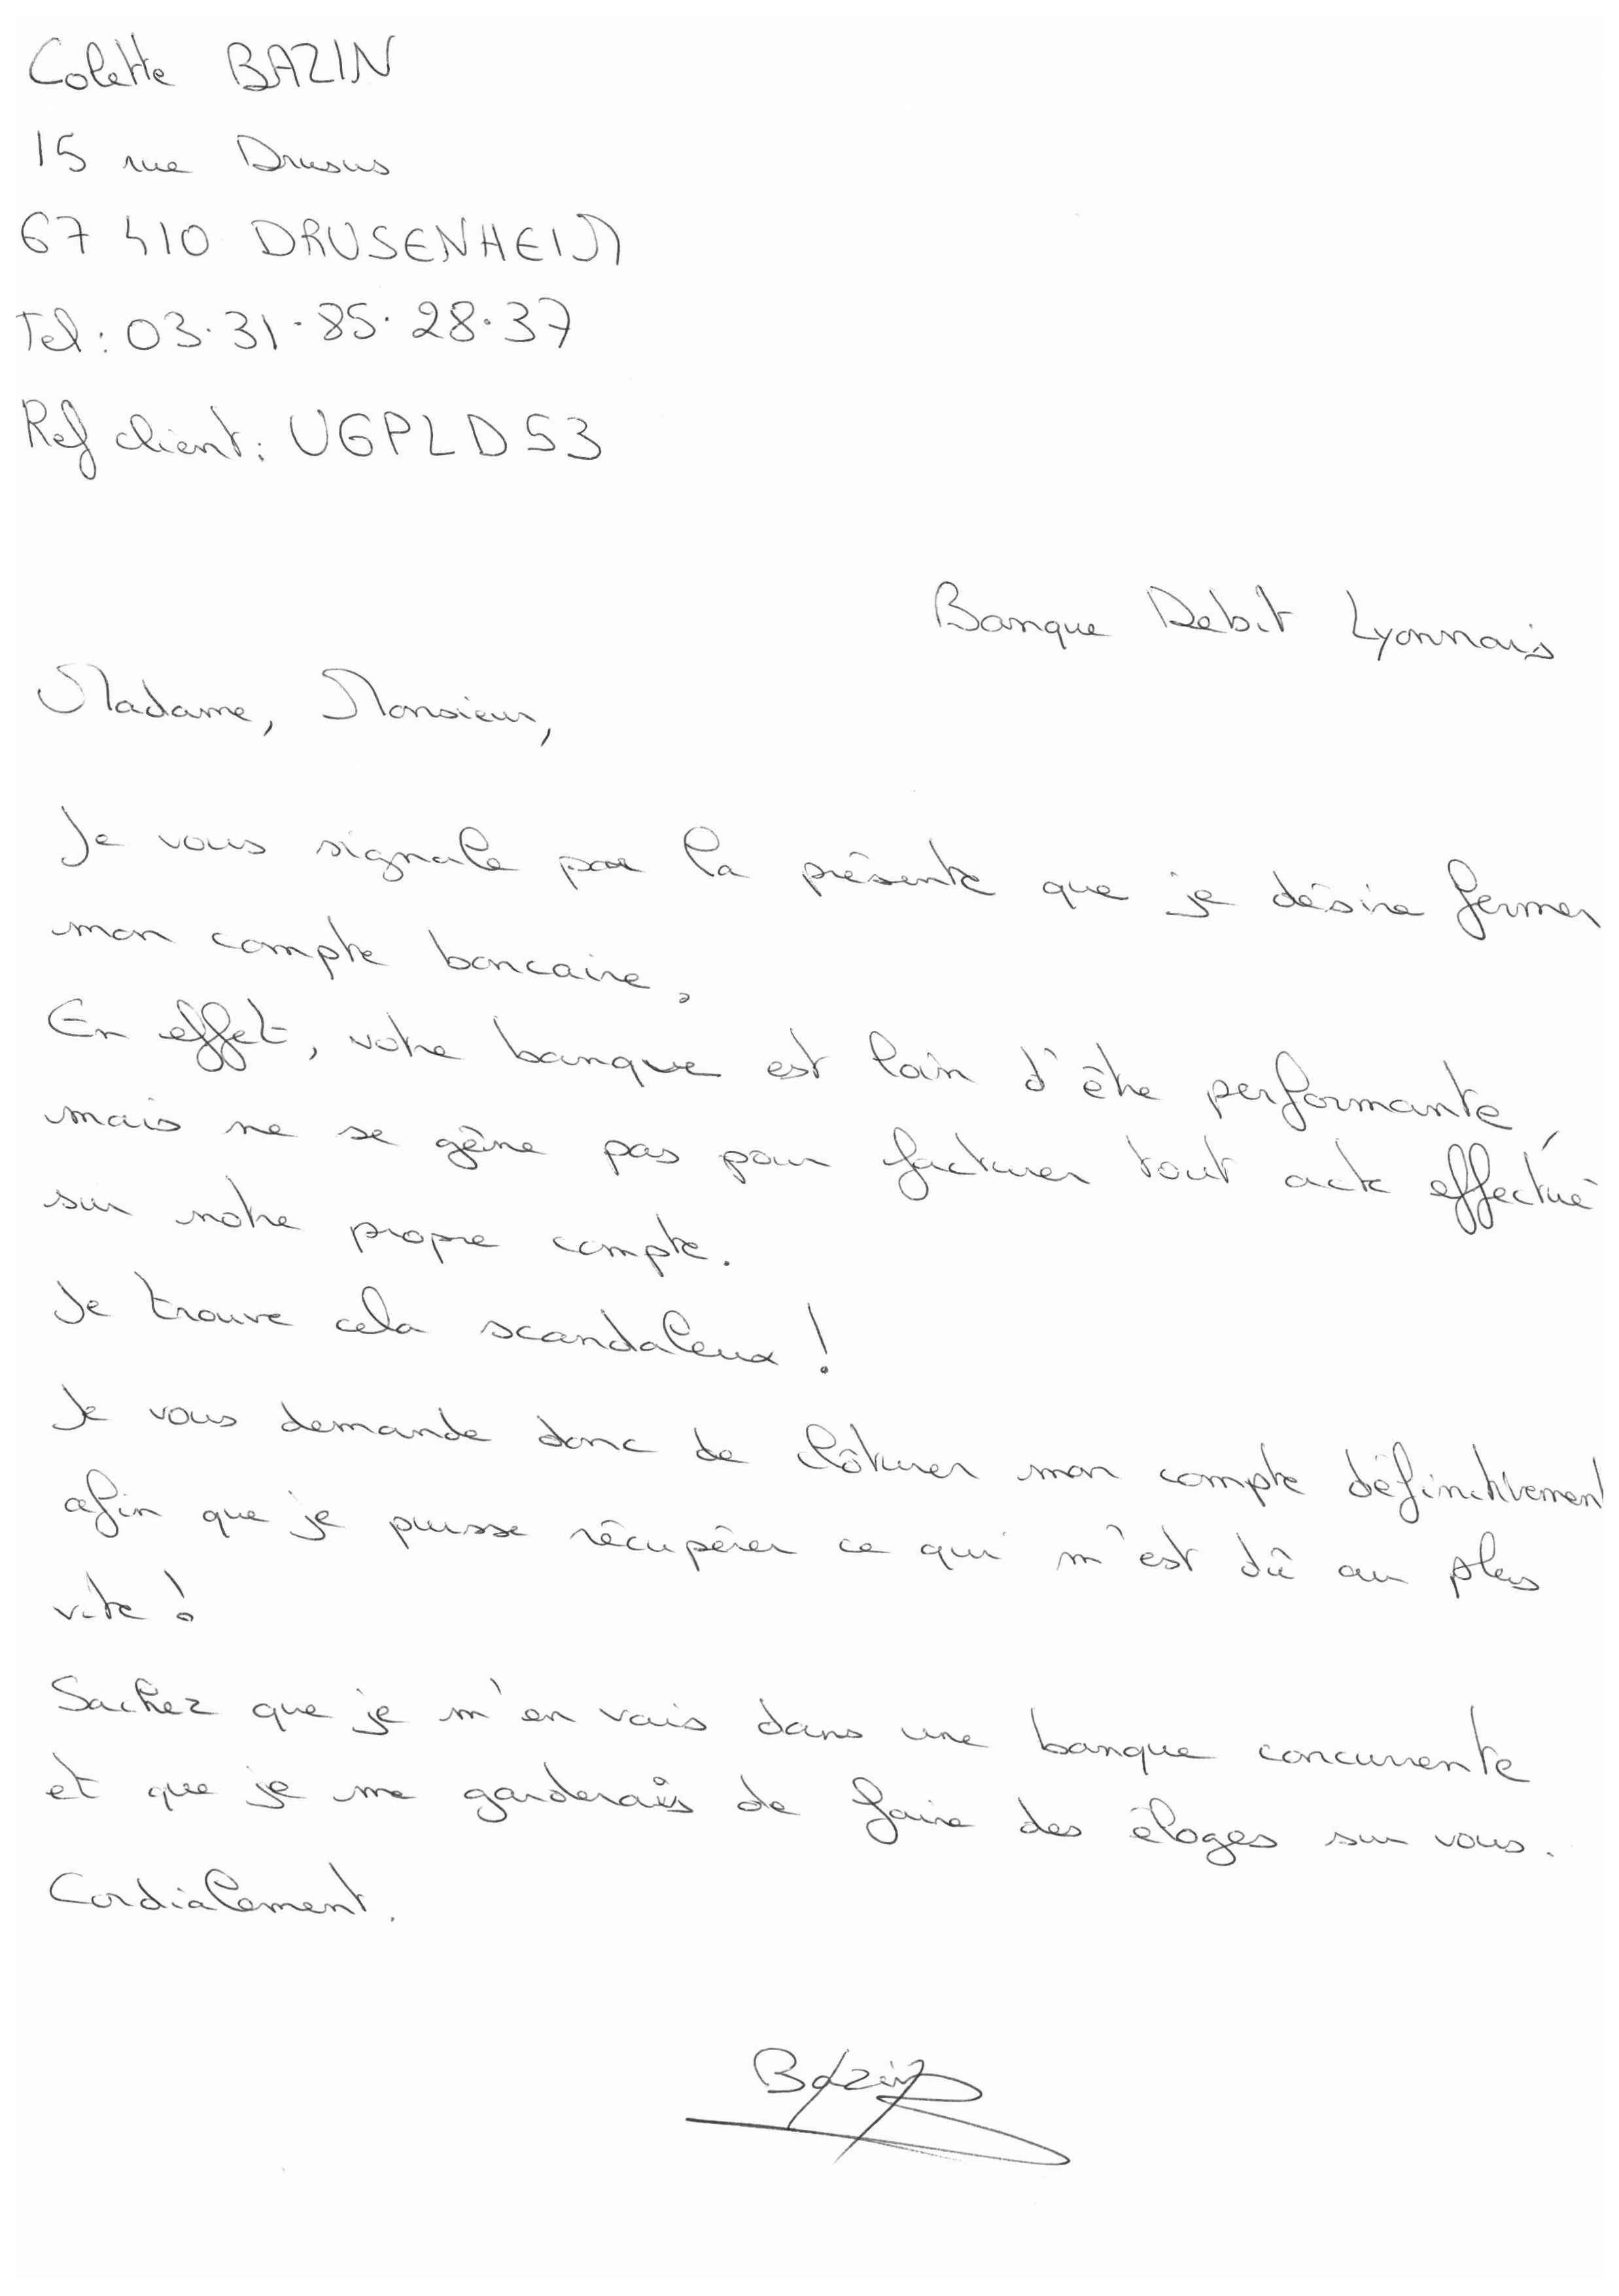 Colette BAZIN
15 rue Drusus
67 410 DRUSENHEIM
Tel : 03.31.85.28.37
Ref client : UGPLD53
Banque Debit Lyonnais
Madame, Monsieur,
Je vous signale par la présente que je désire fermer
mon compte bancaire.
En effet, votre banque est loin d'être performante,
mais ne se gêne pas pour facturer tout acte effectué
sur notre propre compte.
Je trouve cela scandaleux !
Je vous demande donc de clôturer mon compte définitivement
afin que je puisse récupérer ce qui m'est dû au plus
vite !
Sachez que je m'en vais dans une banque concurrente
et que je me garderais de faire des éloges sur vous.
Cordialement.
Bazin